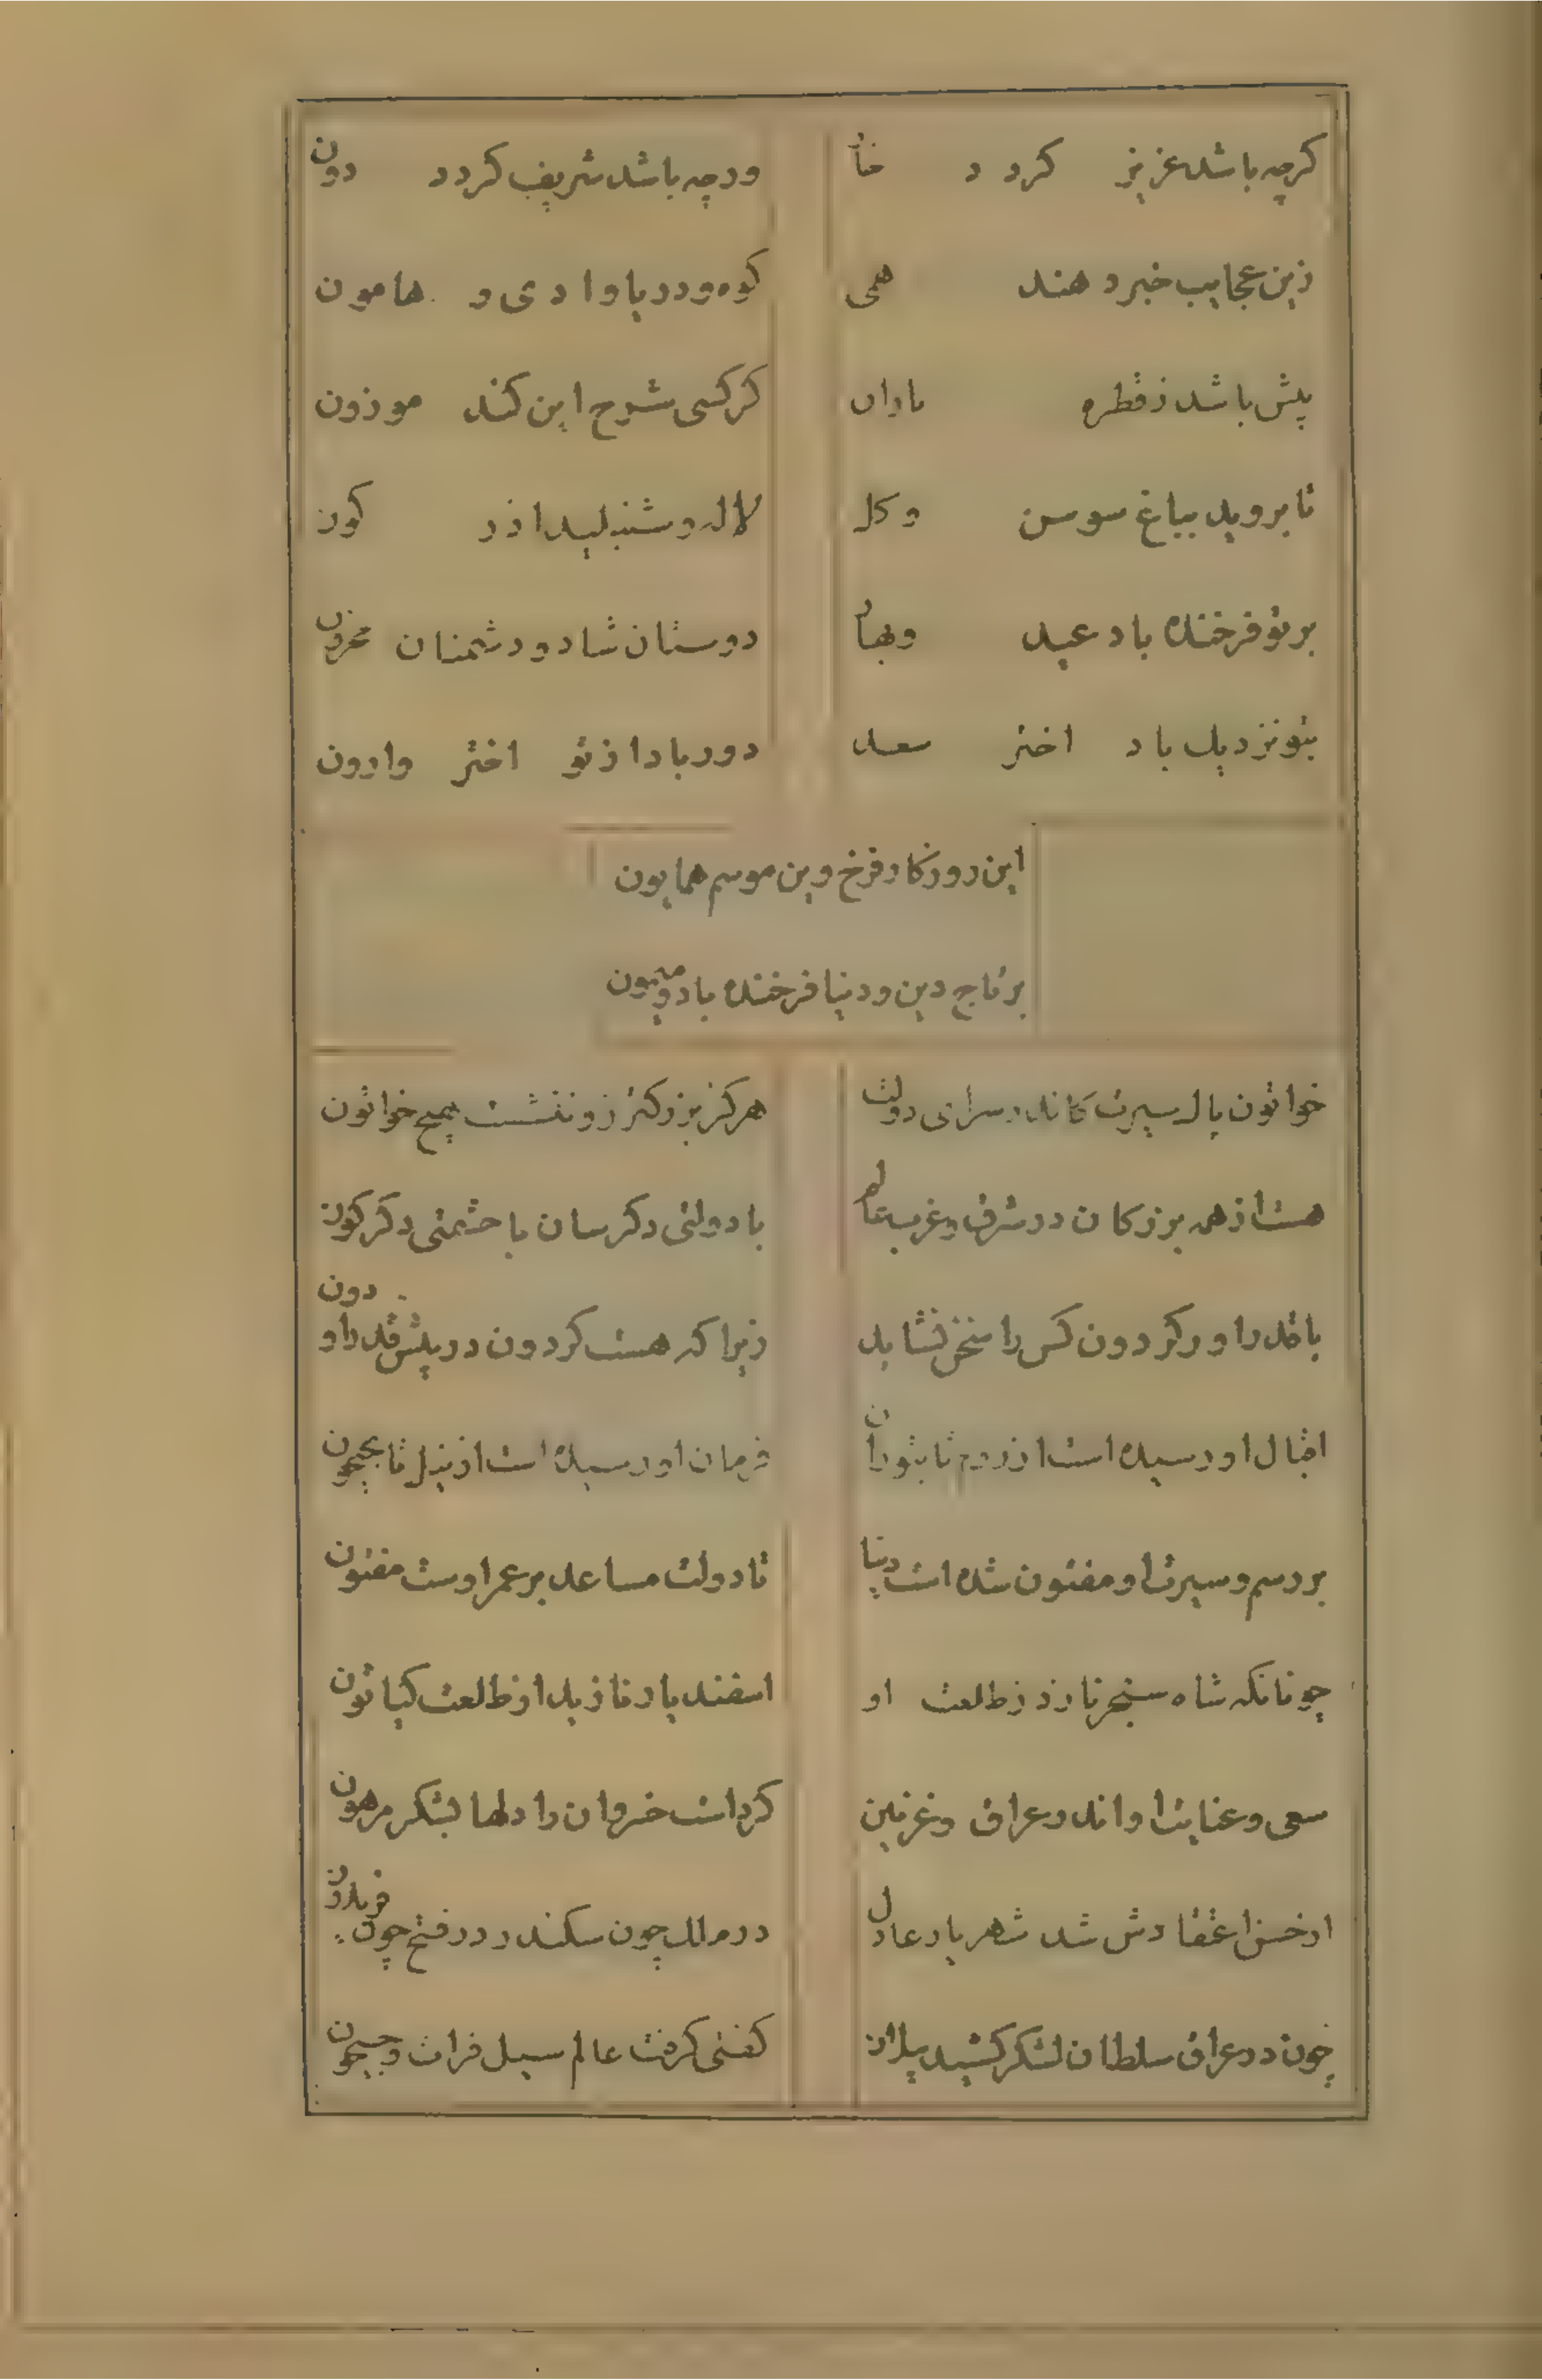 کرچه باشد عزیز کردد خار ورچه باشد شریف کردد دون
زین عجایب خبر دهند همی کوه و دریا و وادی و هامون
بیش باشد ز قطره باران کر کسی شرح این کند موزون
تا بروید بباغ سوسن و کل لاله و شنبلید اذرکون
بر تو فرخنده باد عید و بهار دوستان شاد و دشمنان محزون
بتو نزدیک باد اختر سعد دور بادا از تو اختر وارون
این روزکار فرخ وین موسم همایون
بر تاج دین و دنیا فرخنده باد و میمون
خواتون پاک سیرت کاندر سرای دولت هرکز بزرکتر زو ننشست هیچ خواتون
هست از همه بزرکان در شرق و غرب عالم با دولتی دکرسان با حشمتی دکرکون
با قدر او ز کردون کس را سخن نشاید زیرا که هست کردون در پیش قدر او دون
اقبال او رسیده است از روم تا بتوران فرمان او رسیده است از نیل تا بجیحون
بر رسم و سیرت او مفتون شده است دنیا تا دولت مساعد بر عمر اوست مفتون
چونانکه شاه سنجر نازد ز طلعت او اسفندیار نازید از طلعت کیاتون
سعی و عنایت او اندر عراق و غزنین کرد است خسروان را دلها بشکر مرهون
از حسن اعتقادش شد شهریار عادل در ملک چون سکندر در فتح چون فریدون
چون در عراق سلطان لشکر کشید یلان کفتی کرفت عالم سیل فرات و جیحون